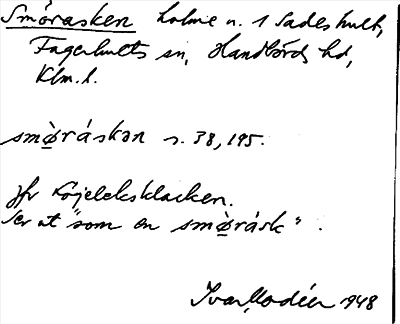 Smörasken holme n. 1 Sadeshult,
Fagerhults sn, Handbörds hd,
Klm. l.
smø̀råskən s. 38, 195.
Jfr Köjeleksklacken.
Ser ut "som en smø̀råsk".
Ivar Modéer 1948